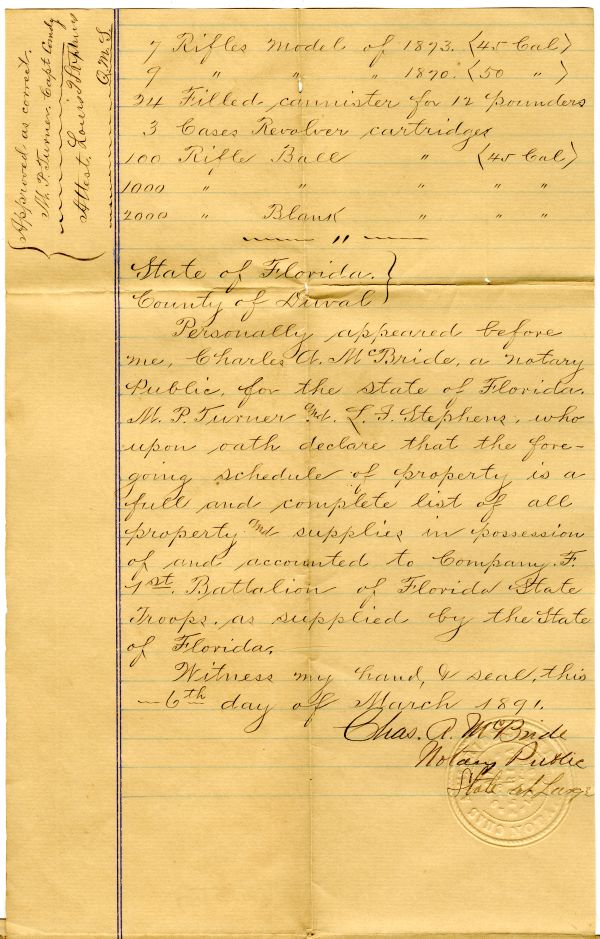 7 Rifles Model of 1873. (45 Cal)
9 " " " 1870. (50 ")
24 Filled cannister for 12 pounders
3 Cases Revolver cartridges
100 Rifle Ball " (45 Cal)
1000 " " " " "
2000 " Blank " " "
"
State of Florida. }
County of Duval }
Personally appeared before
me, Charles A. McBride, a notary
Public, for the state of Florida.
M. P. Turner and L. F. Stephens, who
upon oath declare that the fore-
going schedule of property is a
full and complete list of all
property and supplies in possession
of and accounted to Company. F.
1st. Battalion of Florida State
Troops. as supplied by the State
of Florida.
Witness my hand, & seal, this
6th day of March 1891.
Chas. A. McBride
Notary Public
State at Large
Approved as correct.
M. P. Turner. Capt Comdg
Attest. Louis F. Stephens
Q.M.S.